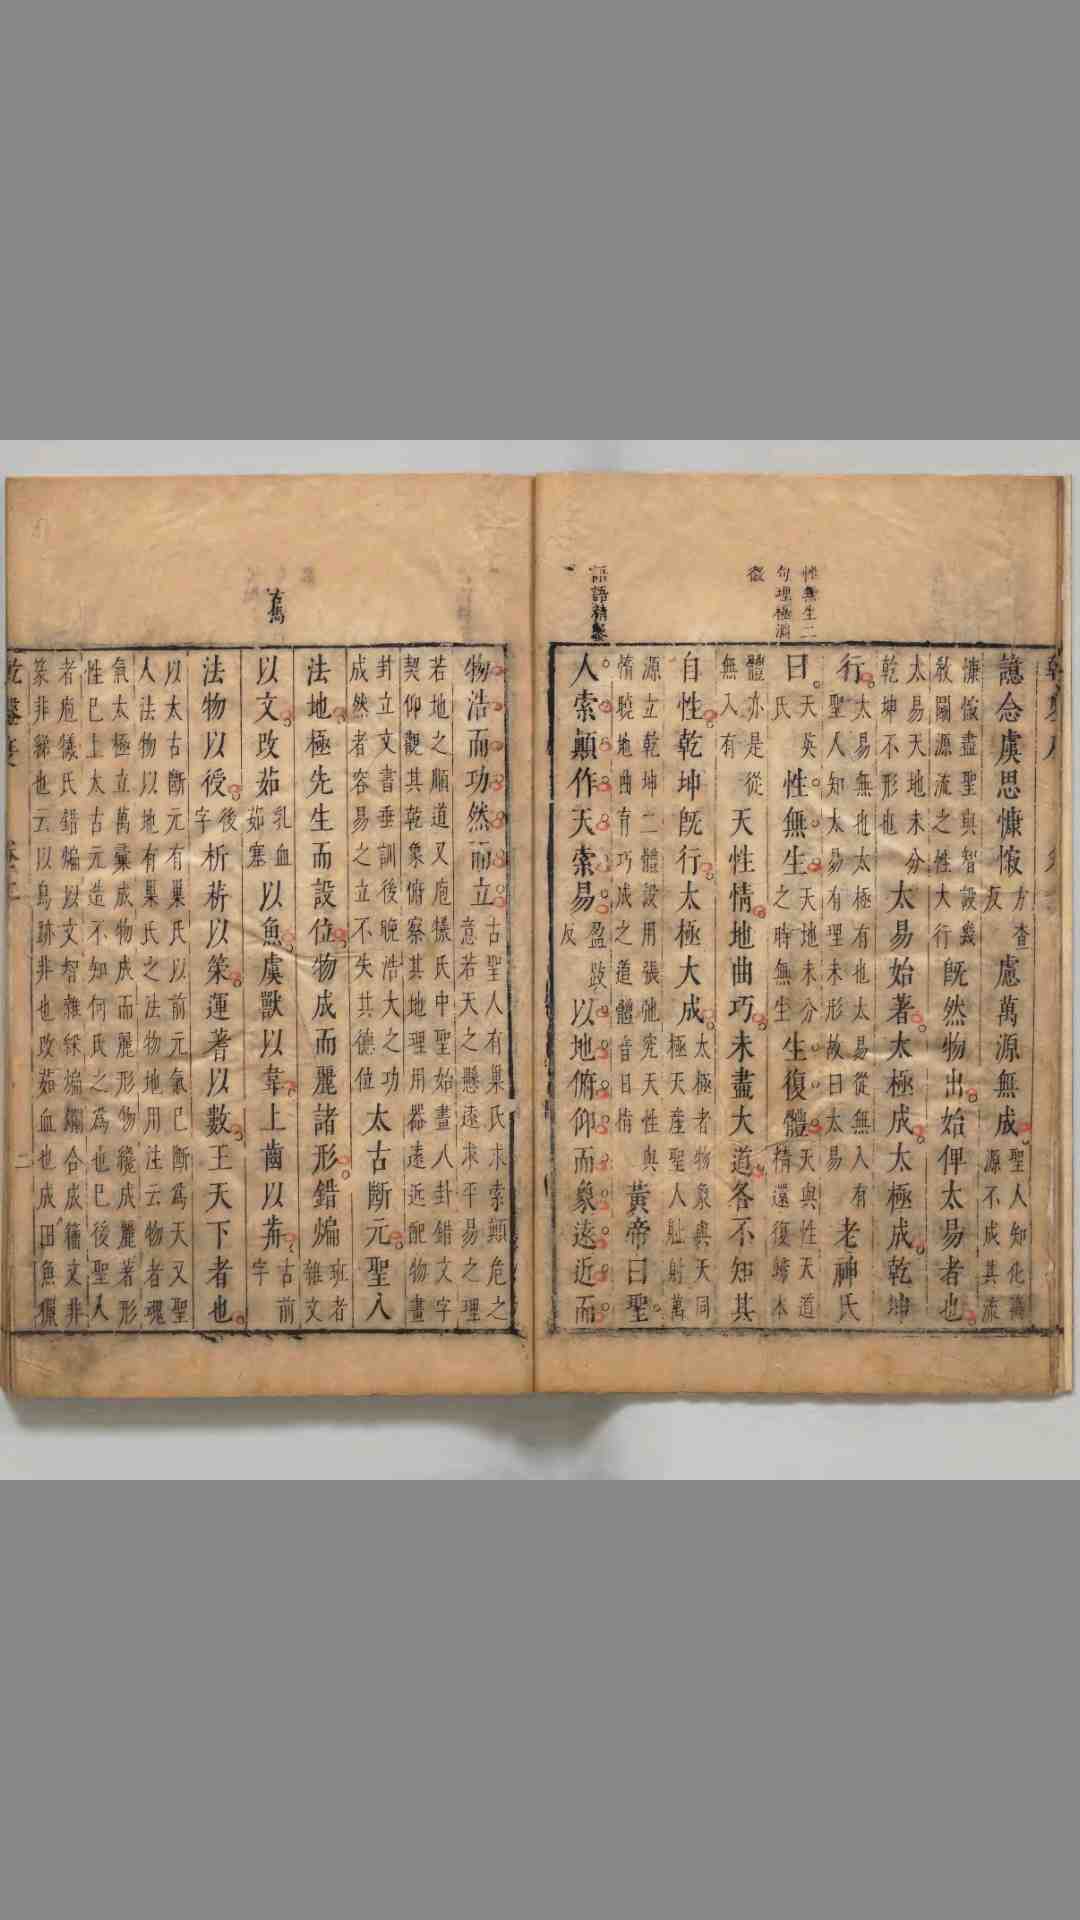 性無生二
句理極淵
微
語語精鑿
念虞思慷方查反慮萬源無成聖人知化源不成其流
盡聖與智設幾敘闢源流之性大行既然物出始俾太易者也
太易天地未分乾坤不形也太易始著太極成太極成乾坤
行太易無也太極有也太易從無入有聖人知太易有理未形故曰太易老神氏
曰天英氏性無生天地未分之時無生生復體天與性天道精還復歸本
體亦是從無入有天性情地曲巧未盡大道各不知其
自性乾坤旣行太極大成太極者物象與天同極天產聖人射萬
源立乾坤二體設用張弛究天性與情曉地曲育巧成之道體黃帝曰聖
人索顛作天索易盈歧反以地俯仰而象遠近而
古雋
物浩而功然而立古聖人有巢氏未索顛危之意若天之懸遠求平易之理
若地之順道又庖犧氏中聖始畫八卦錯文字契仰觀其乾象俯察其地理用器遠近配物畫
卦立文書垂訓後晚浩大之功成然者容易之立不失其德位太古斷元聖人
法地極先生而設位物成而麗諸形錯煸班者雜文
以文改茹乳血茹塞以魚虞獸以韋上齒以古前字
法物以授後字析蓍以策運蓍以數王天下者也
以太古斷元有巢氏以前元氣已斷爲天又聖人法物以地有巢氏之法物地用注云物者魂
氣太極立萬彙成物成而麗形物纔成麗著形性已上太古元造不知何氏之爲也已後聖人
者庖犧氏錯煸以文智雜綵煸爛合成籀文非篆非隸也云以鳥跡非也改茹血也成田魚獵
二